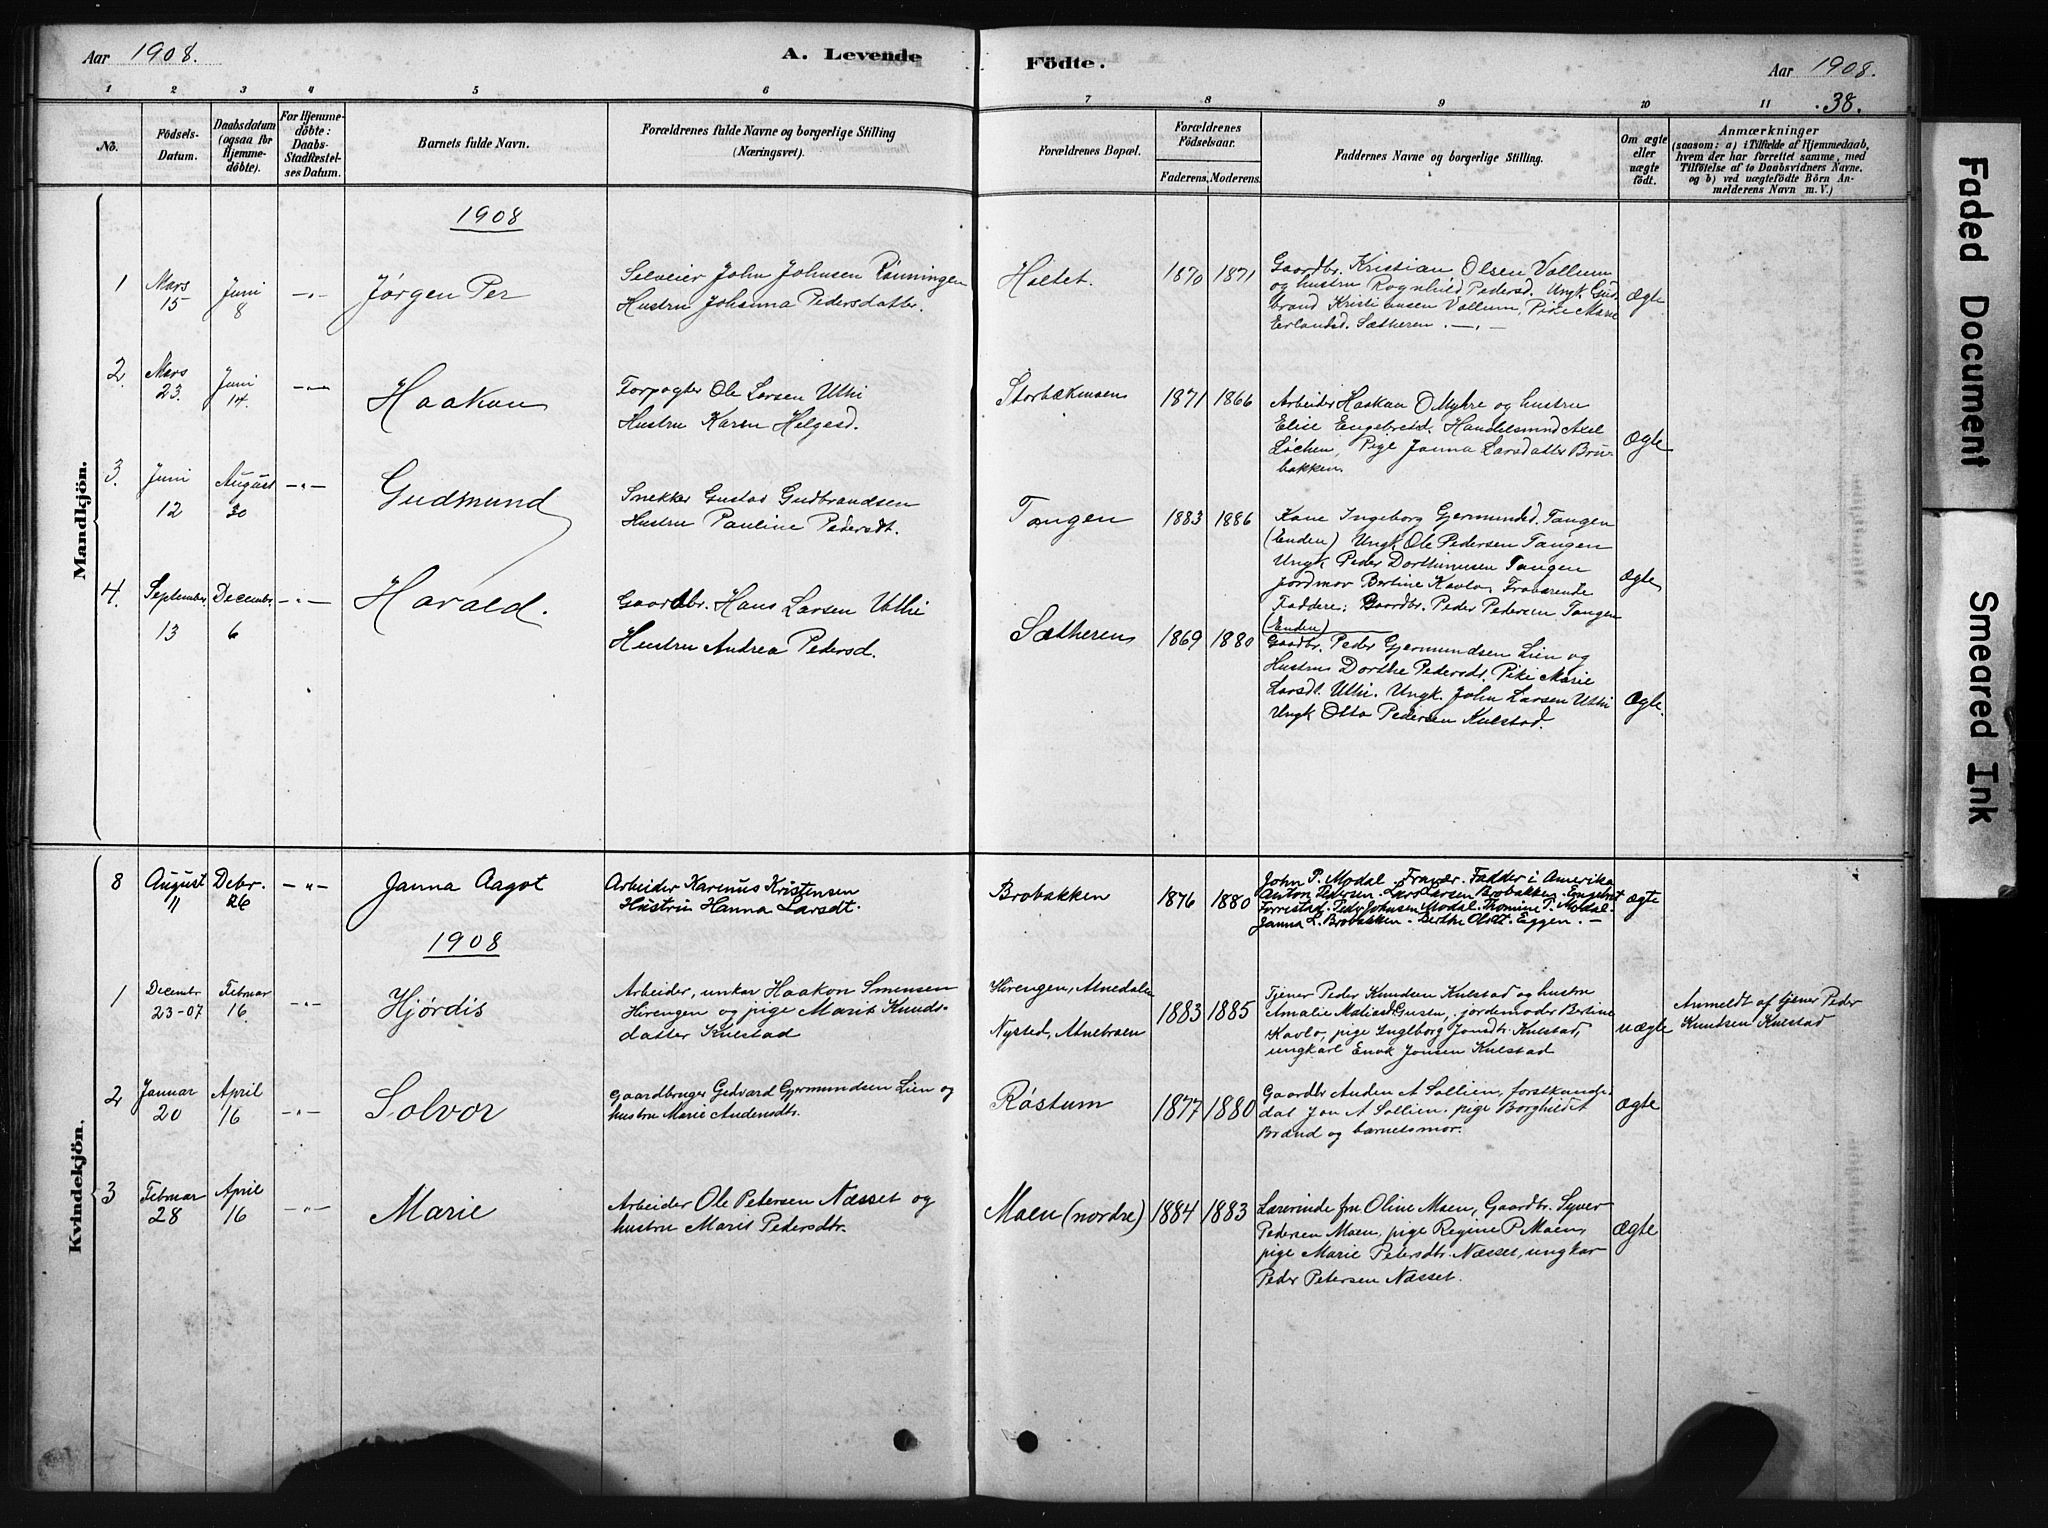 Aar 1908.
A. Levende
Födte.
Aar 1908.
1 2 3 4 5 6
7 8 9 10 11 38.
No.
Födsels-
Datum.
Daabsdatum
(ogsaa for
Hjemme-
döbte).
For Hjemme-
döbte:
Daabs-
Stadfæstel-
ses Datum.
Barnets fulde Navn.
Forældrenes fulde Navne og borgerlige Stilling
(Næringsvei).
Forældrenes Bopæl.
Forældrenes
Födselsaar.
Faderens. Moderens.
Faddernes Navne og borgerlige Stilling.
Om ægte
eller
uægte
födt.
Anmærkninger
(saasom: a) i Tilfælde af Hjemmedaab,
hvem der har forrettet samme, med
Tilföielse af to Daabsvidners Navne,
og b) ved uægtefödte Börn An-
melderens Navn m. V.)
Mandkjön.
1908
1
Mars
15
Juni
8
-„-
Jørgen Per
Selveier John Johnsen Rønningen
Hustru Johanna Pedersdatter.
Holtet.
1870 1871
Gaardbr. Kristian Olsen Vollum
og hustru Ragnhild Pedersd. Ungk. Gud-
brand Kristiansen Vollum, Pike Marie
Erlandsd. Sætheren. -„-
Ægte
2.
Mars
23.
Juni
14.
-„-
Haakon
Forpagter Ole Larsen Uthi
Hustru Karen Helgesd.
Storbækmoen
1871 1866
Arbeider Haakon O Myhre og hustru
Elise Engebretsd. Handelsmand Axel
Løchen, Pige Janna Larsdatter Bru-
bakken.
Ægte
3.
Juni
12
August
30
-„-
Gudmund
Snekker Gustav Gudbrandsen
Hustru Pauline Pedersdt.
Tangen
1883 1886
Kone Ingeborg Gjermundsd. Tangen
(Enden) Ungk. Ole Pedersen Tangen
Ungk. Peder Dorthinusen Tangen
jordmor Bertine Kavlo, Fraværende
Faddere: Gaardbr. Peder Pedersen Tangen
(Enden)
Ægte
4.
September
13
December
6
-„-
Harald.
Gaardbr. Hans Larsen Uthi
Hustru Andrea Pedersd.
Sætheren
1869 1880
Gaardbr. Peder Gjermundsen Lien og
Hustru Dorthe Pedersdt. Pike Marie
Larsdt. Uthi. Ungk. John Larsen Uthi
Ungk Otto Pedersen Kulstad.
Ægte.
Kvindekjön.
8
August
11
Debr.
26
-„-
Janna Aagot
Arbeider Karenus Kristensen
Hustru Hanna Larsdt.
Brobakken
1876 1880
John P. Modal. Fravær. Fadder i Amerika
Anton Pedersen. Lars Larsen Brobakken. Engebret
Forrestad. Peder Johnsen Modal. Thomine P. Modal.
Janna L. Brobakken. Berthe Olsdt. Eggen. -
Ægte
1908
1
Decembr
23-07
Februar
16
-„-
Hjørdis
Arbeider, unkar Haakon Simensen
Hirengen og pige Marit Knuds-
datter Kulstad
Hirengen, Alnedalen
Nysted, Alnebraen
1883 1885
Tjener Peder Knudsen Kulstad og hustru
Amalie Gusten, jordemoder Bertine
Kavlo, pige Ingeborg Jonsdtr. Kulstad,
ungkarl Enok Jonsen Kulstad
uægte
Anmeldt af tjener Peder
Knudsen Kulstad
2
Januar
20
April
16
-„-
Solvor
Gaardbruger Gedvard Gjermundsen Lien og
hustru Marie Andersdtr.
Røstum
1877 1880
Gaardbr Anden A Sollien, forstkandi-
dat Jon A Sollien, pige Borghild A
Brænd og barnetsmor.
Ægte
3
Februar
28
April
16
-„-
Marie
Arbeider Ole Petersen Næsset og
hustru Marit Pedersdtr.
Moen (nordre)
1884 1883
Lærerinde fru Oline Moen, Gaardbr. Syver
Pedersen Moen, pige Regine P. Moen,
pige Marie Petersdtr. Næsset, ungkar
Peder Petersen Næsset.
Ægte
Faded Document
Smeared Ink